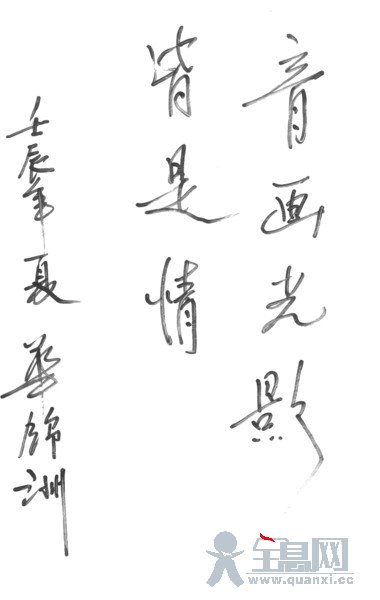 音画光影
皆是情
壬辰年夏 华锦洲
全息网
www.quanxi.cc